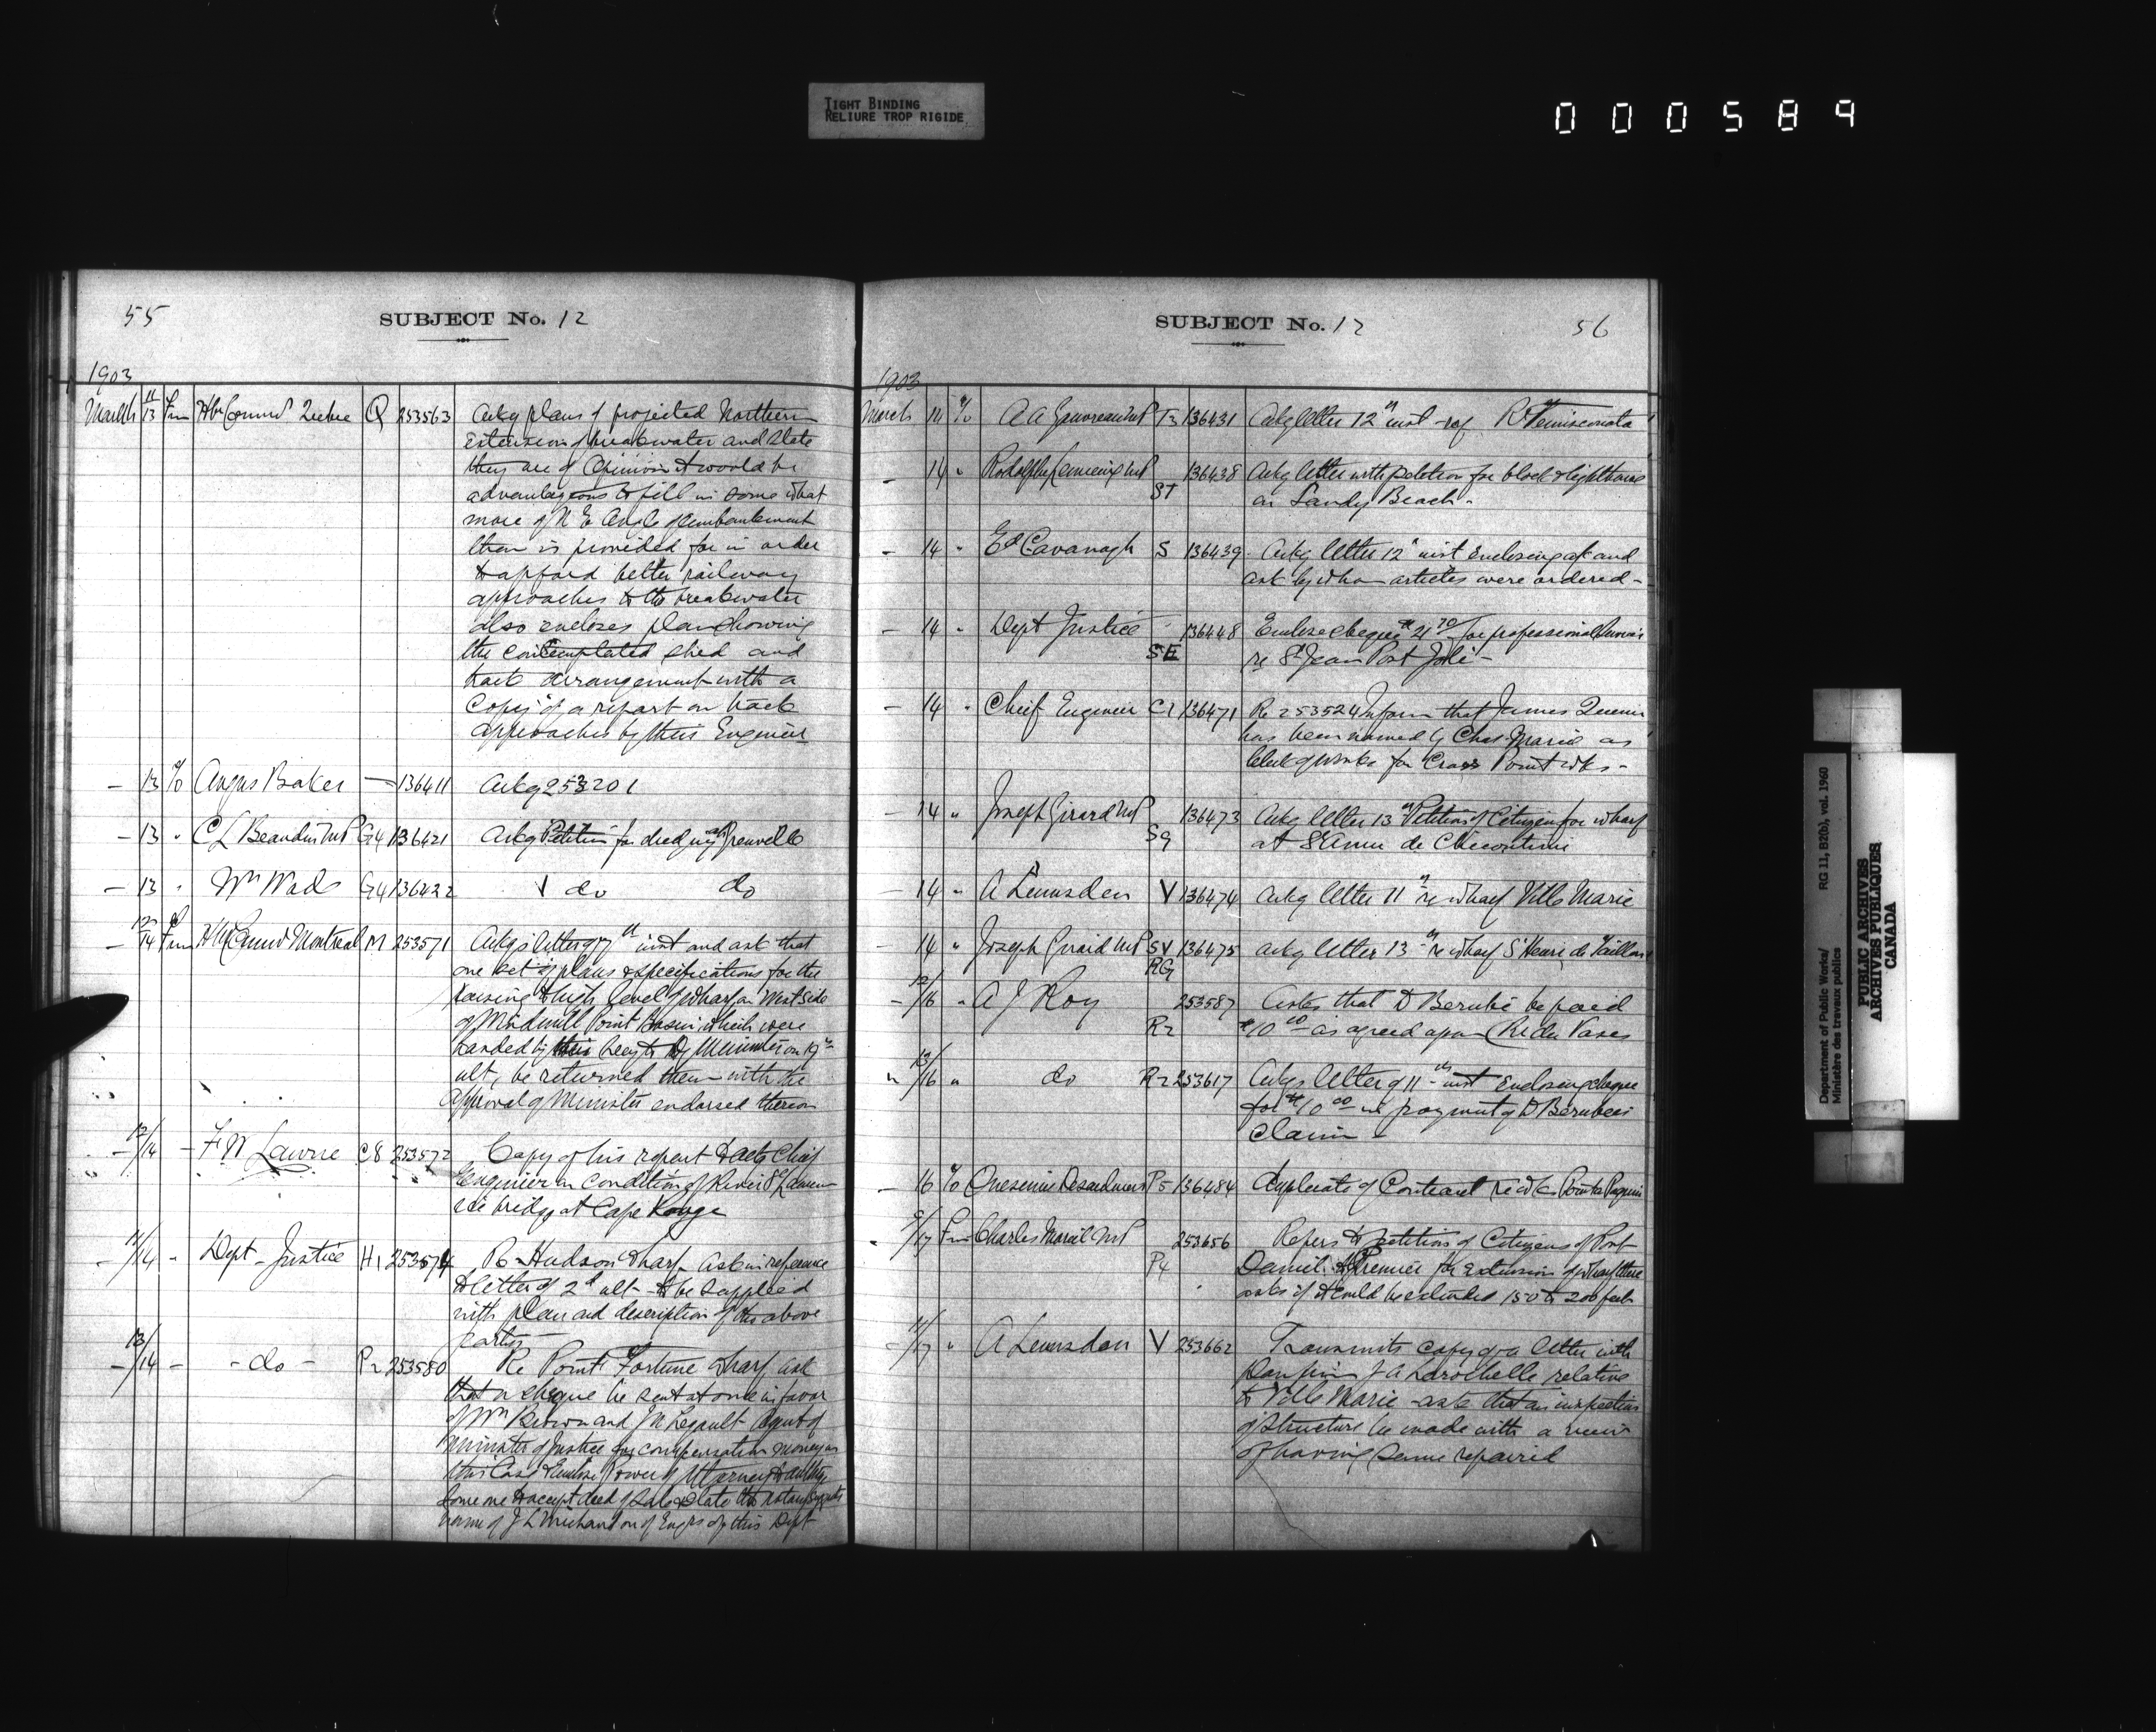 TIGHT BINDING
RELIURE TROP RIGIDE
000589
55
SUBJECT No. 12
1903
March 11/13 Frm Hbr Commrs Quebec Q 253563 Ackg plans of projected Northern
extension of breakwater and state
they are of Opinion it would be
advantageous to fill in some what
more of N E Angle of embankment
than is provided for in order
to afford better railway
approaches to the breakwater
also encloses plan showing
the contemplated shed and
track arrangement with a
Copy of a report on track
approaches by their Engineer
— 13 To Angus Baker — 136411 Ackg 253201
— 13 " C L Beaudin MP G4 136421 Ackg Petition for dredging at Grenville
— 13 " Wm Wade G4 136422 do do
— 12/14 Frm Hbr Commrs Montreal M 253571 Ackgs letter of 7th inst and ask that
one set of plans & specifications for the
raising to high level of wharf on West Side
of Windmill Point Basin which were
handed by their Secy to Dy Minister on 19th
ult, be returned them with the
Approval of Minister endorsed thereon
— 12/14 — F W Lawrre C8 253572 Copy of his report to acts Chief
Engineer on condition of River
bridge at Cape Rouge
— 11/14 " Dept Justice H1 253574 Re Hudson Wharf Ask in reference
to letter of 2d ult — to be supplied
with plan and description of the above
parties —
— 13/14 — - do - P2 253580 Re Point Fortune wharf ask
that a cheque be sent at once in favor
of Wm Brown and J N Legault Agent of
Minister of Justice for compensation money in
this Case & Enclose Power of Attorney to authze
some one to accept deed of Sale & state the notary suggests
name of J L Michaud on of Engrs of this Dept
SUBJECT No. 12
56
1903
March 14 To A A Gauvreau MP T2 136431 Ackg letter 12th inst - rof R Temiscouata
— 14 " Rodolphe Lemieux MP ST 136438 Ackg letter with petition for block & lighthouse
on Sandy Beach -
— 14 " Ed Cavanagh S 136439 Ackg letter 12th inst Enclosing a/c and
ask by whom articles were ordered -
— 14 " Dept Justice SE 136448 Enclose cheque $21 70 for professional Services
re St Jean Port Joli -
— 14 " Chief Engineer C1 136471 Re 253524 Inform that James
has been named by Chas Marcil as
Clerk of works for Cross Point wks -
— 14 " Joseph Girard MP Sq 136473 Ackg letter 13th Petition of Citizens for wharf
at St Anne de Chicoutimi
— 14 " A Lumsden V 136474 Ackg letter 11th re wharf Ville Marie
— 14 " Joseph Girard MP SV RG 136475 Ackg letter 13th re wharf St Henri de Taillon
— 12/16 " A J Roy R2 253587 Asks that D Berube be paid
$10 00 as agreed upon (Re du Vases
" 13/16 " do R2 253617 Ackgs letter of 11th inst Enclosing cheque
for $10 00 in payment of D Berubes
claim -
— 16 To Onesime Desaulniers P5 136484 Duplicate of Contract re wks Pointe Paquin
9/17 Frm Charles Marcil MP P4 253656 Refers to petition of Citizens of Port
Daniel to Premier for extension of wharf there
asks if it could be extended 150 to 200 feet
11/17 " A Lumsden V 253662 Transmits copy of a letter with
plan from J A Larochelle relative
to Ville Marie - ask that an inspection
of structure be made with a view
of having same repaired
Department of Public Works/
Ministère des travaux publics
RG 11, B2(b), vol. 1960
PUBLIC ARCHIVES
ARCHIVES PUBLIQUES
CANADA